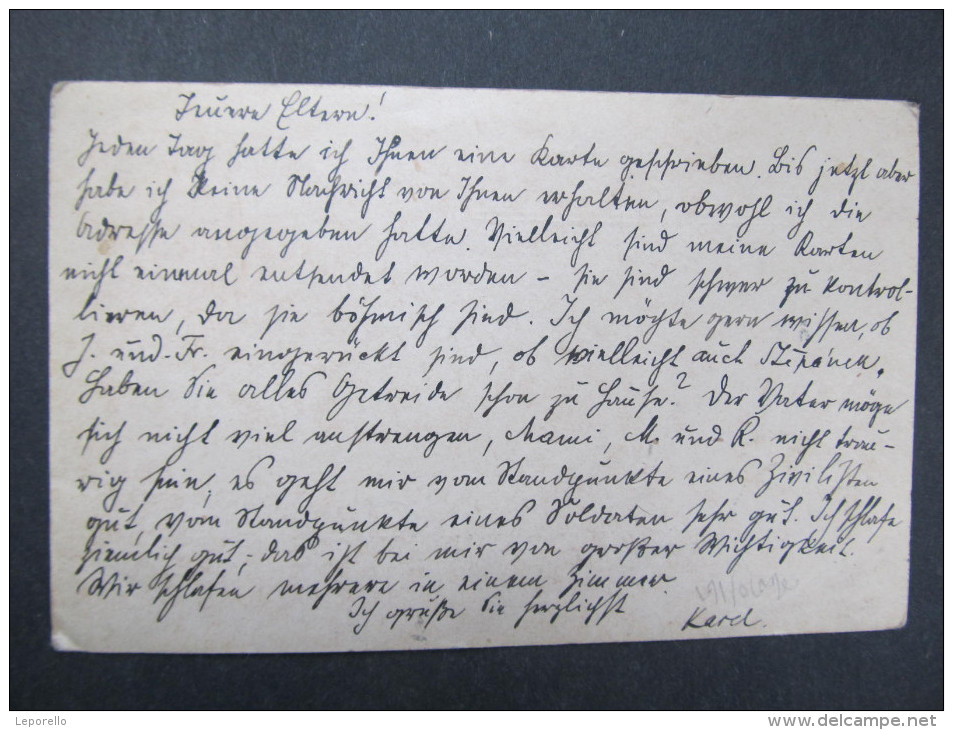 Teuere Eltern!
Jeden Tag hatte ich Ihnen eine Karte geschrieben. Bis jetzt aber
habe ich keine Nachricht von Ihnen erhalten, obwohl ich die
Adresse angegeben hatte. Vielleicht sind meine Karten
nicht einmal entsendet worden – sie sind schwer zu kontrol-
lieren, da sie böhmisch sind. Ich möchte gern wissen, ob
J. und Fr. eingerückt sind, ob vielleicht auch Štěpánek.
Haben Sie alles Getreide schon zu Hause? Der Vater möge
sich nicht viel anstrengen, Mami, M. und R. nicht trau-
rig sein, es geht mir vom Standpunkte eines Zivilisten
gut, vom Standpunkte eines Soldaten sehr gut. Ich schlafe
ziemlich gut; das ist bei mir von großer Wichtigkeit.
Wir schlafen mehrere in einem Zimmer.
Ich grüße Sie herzlichst
Karel.
Leporello
www.delcampe.net